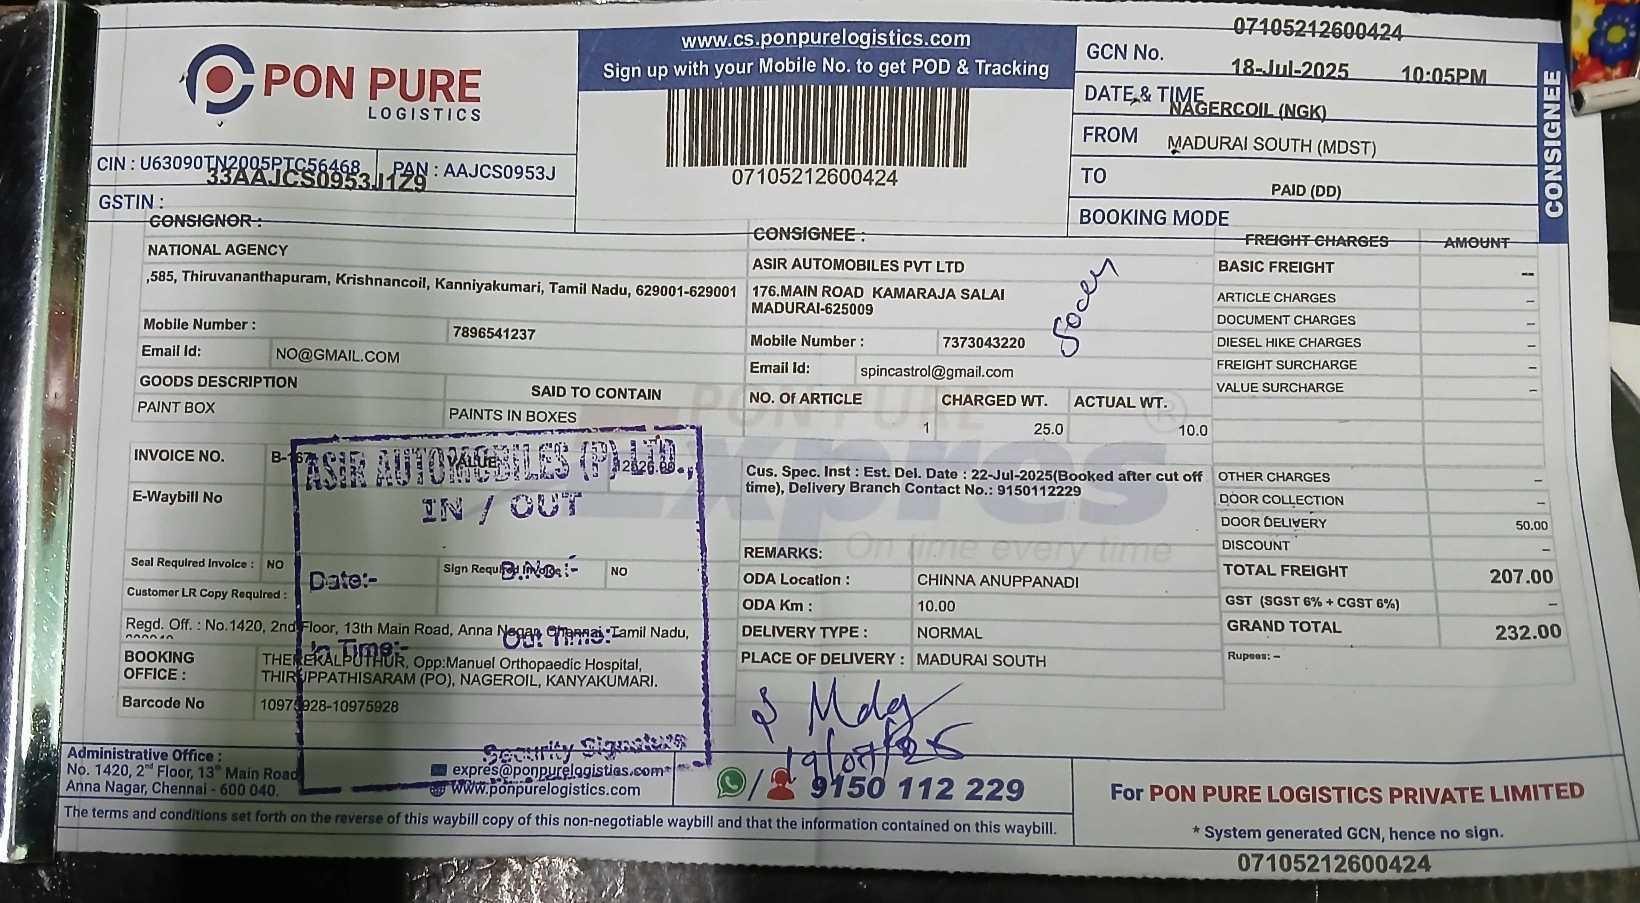 PON PURE
LOGISTICS
CIN : U63090TN2005PTC56468
PAN : AAJCS0953J
33AAJCS0953J1Z9
GSTIN :
www.cs.ponpurelogistics.com
Sign up with your Mobile No. to get POD & Tracking
07105212600424
07105212600424
GCN No.
18-Jul-2025 10:05PM
DATE & TIME
NAGERCOIL (NGK)
FROM
MADURAI SOUTH (MDST)
TO
PAID (DD)
BOOKING MODE
CONSIGNEE
CONSIGNOR :
NATIONAL AGENCY
,585, Thiruvananthapuram, Krishnancoil, Kanniyakumari, Tamil Nadu, 629001-629001
Mobile Number : 7896541237
Email Id: NO@GMAIL.COM
GOODS DESCRIPTION SAID TO CONTAIN
PAINT BOX PAINTS IN BOXES
INVOICE NO. VALUE
E-Waybill No
Seal Required Invoice : NO Sign Required Invoice : NO
Customer LR Copy Required :
Regd. Off. : No.1420, 2nd Floor, 13th Main Road, Anna Nagar, Chennai, Tamil Nadu,
BOOKING OFFICE :
THEREKALPUTHUR, Opp:Manuel Orthopaedic Hospital,
THIRUPPATHISARAM (PO), NAGEROIL, KANYAKUMARI.
Barcode No 10975928-10975928
ASIR AUTOMOBILES (P) LTD.,
IN / OUT
Date:- B.No:-
In Time:- Out Time:-
Security Signature
CONSIGNEE :
ASIR AUTOMOBILES PVT LTD
176.MAIN ROAD KAMARAJA SALAI
MADURAI-625009
Mobile Number : 7373043220
Email Id: spincastrol@gmail.com
NO. Of ARTICLE CHARGED WT. ACTUAL WT.
1 25.0 10.0
PON PURE
Expres
On time every time
Cus. Spec. Inst : Est. Del. Date : 22-Jul-2025(Booked after cut off
time), Delivery Branch Contact No.: 9150112229
REMARKS:
ODA Location : CHINNA ANUPPANADI
ODA Km : 10.00
DELIVERY TYPE : NORMAL
PLACE OF DELIVERY : MADURAI SOUTH
FREIGHT CHARGES AMOUNT
BASIC FREIGHT --
ARTICLE CHARGES –
DOCUMENT CHARGES –
DIESEL HIKE CHARGES –
FREIGHT SURCHARGE –
VALUE SURCHARGE –
OTHER CHARGES –
DOOR COLLECTION –
DOOR DELIVERY 50.00
DISCOUNT –
TOTAL FREIGHT 207.00
GST (SGST 6% + CGST 6%) –
GRAND TOTAL 232.00
Rupees: –
Administrative Office :
No. 1420, 2nd Floor, 13th Main Road
Anna Nagar, Chennai - 600 040.
expres@ponpurelogistias.com
www.ponpurelogistics.com
9150 112 229
The terms and conditions set forth on the reverse of this waybill copy of this non-negotiable waybill and that the information contained on this waybill.
For PON PURE LOGISTICS PRIVATE LIMITED
* System generated GCN, hence no sign.
07105212600424